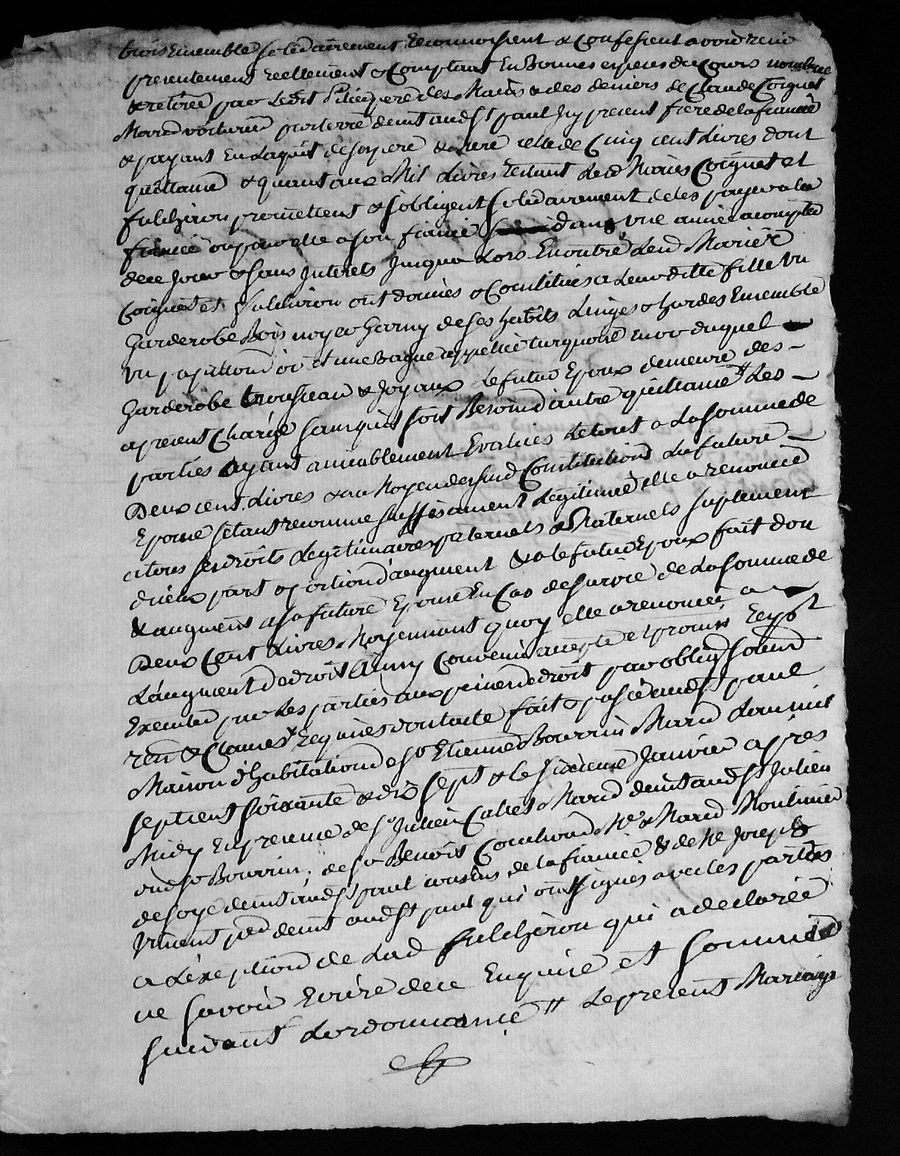 trois Ensemble solidairement Reconnoissent & Confessent avoir receu
presentement reellement & Comptant En Bonnes especes du Cours nombrée
& retirée par ledit pere des Mains & des deniers de Claude Coignet
Mard voiturier par terre demt aud St paul Icy present frere de la fiancée
& payant En laquit de son pere & mere celle de Cinq cent Livres dont
quittance & quant aux Mil Livres restant Lesd Mariés Coignet et
fulchiron promettent & s'obligent solidairement de les payer a la
fiancée ou pour elle a son fiancé dans une année a compter
de ce Jour & sans Interets Jusqua Lors En outre Lesd Mariés
Coignet et fulchiron ont donnés & Constitués a Leur ditte fille Un
Garderobe Bois noyer Garny de ses habits Linges & hardes Ensemble
Un papillon or et une Bague appellée turquoise En or duquel
Garderobe trousseau & Joyaux Le futur Epoux demeure des
a present Chargé sans qu'il soit Besoin d'autre quittance Les
parties ayant amiablement Evalués Le tout a La somme de
Deux cent Livres & au Moyen de sud Constitution La future
Epouse s'etant reconnue suffisament Legitimée elle a renoncé
a tous ses droits Legitimaires paternels & Maternels suplement
d'iceux part & portion d'augment & le futur Epoux fait don
& augment a sa future Epouse En Cas de survie de La somme de
Deux Cent Livres Moyennant quoy elle a renoncée a
L'augment de droit Ainsy Convenu accepté et promis
Executer par Les parties aux peines de droit par oblig soumd
ren & Clauses Requises dont acte fait & passé aud St paul
Maison d'habitation de Sr Etienne Bourrin Mard L'an mil
sept cent soixante & dix sept & le sixieme Janvier apres
Midy En presence de Sr Julien Mard demt aud St Julien
dud Sr Bourrin, de Sr Benoit Me & Mard Moulinier
de soye demt aud St paul cousins de la fiancée & de Me Joseph
Vincent demt aud St paul qui ont signés avec les parties
a L'exeption de Lad fulchiron qui a declarée
ne savoir Ecrire de ce Enquise et sommée
suivant Lordonnance Le present Mariage